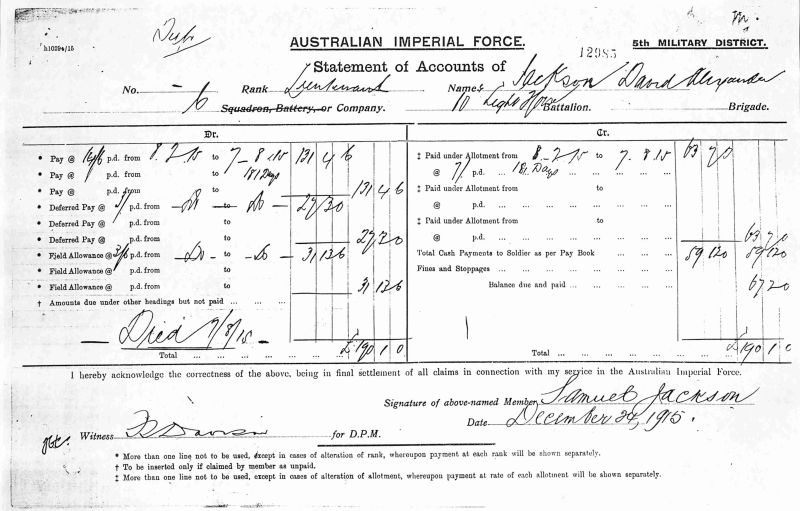 h1029s/15
Dup
AUSTRALIAN IMPERIAL FORCE.
12985
5th MILITARY DISTRICT.
Statement of Accounts of
No. – Rank Lieutenant Name Jackson David Alexander
Squadron, Battery, or Company. 10 Light Horse Battalion. Brigade.
Dr.
* Pay @ 14/6 p.d. from 8.2.15 to 7-8.15 131 4 6
* Pay @ p.d. from to 181 Days
* Pay @ p.d. from to 131 4 6
* Deferred Pay @ 3/ p.d. from -Do- to -Do- 27 3 0
* Deferred Pay @ p.d. from to
* Deferred Pay @ p.d. from to 27 3 0
* Field Allowance @ 3/6 p.d. from -Do- to -Do- 31 13 6
* Field Allowance @ p.d. from to
* Field Allowance @ p.d. from to 31 13 6
† Amounts due under other headings but not paid ... ... ...
– Died 7/8/15 –
Total ... ... ... ... ... £ 190 1 0
Cr.
‡ Paid under Allotment from 8-2-15 to 7.8.15 63 7 0
@ 7/ p.d. ... 181 Days ... ... ...
‡ Paid under Allotment from to
@ p.d. ... ... ... ... ...
‡ Paid under Allotment from to
@ p.d. ... ... ... ... ... 63 7 0
Total Cash Payments to Soldier as per Pay Book ... ... ... 59 12 0 59 12 0
Fines and Stoppages ... ... ... ... ... ...
Balance due and paid ... ... ... 67 2 0
Total ... ... ... ... ... £ 190 1 0
I hereby acknowledge the correctness of the above, being in final settlement of all claims in connection with my service in the Australian Imperial Force.
Signature of above-named Member, Samuel Jackson
Date December 24, 1915.
Witness for D.P.M.
* More than one line not to be used, except in cases of alteration of rank, whereupon payment at each rank will be shown separately.
† To be inserted only if claimed by member as unpaid.
‡ More than one line not to be used, except in cases of alteration of allotment, whereupon payment at rate of each allotment will be shown separately.